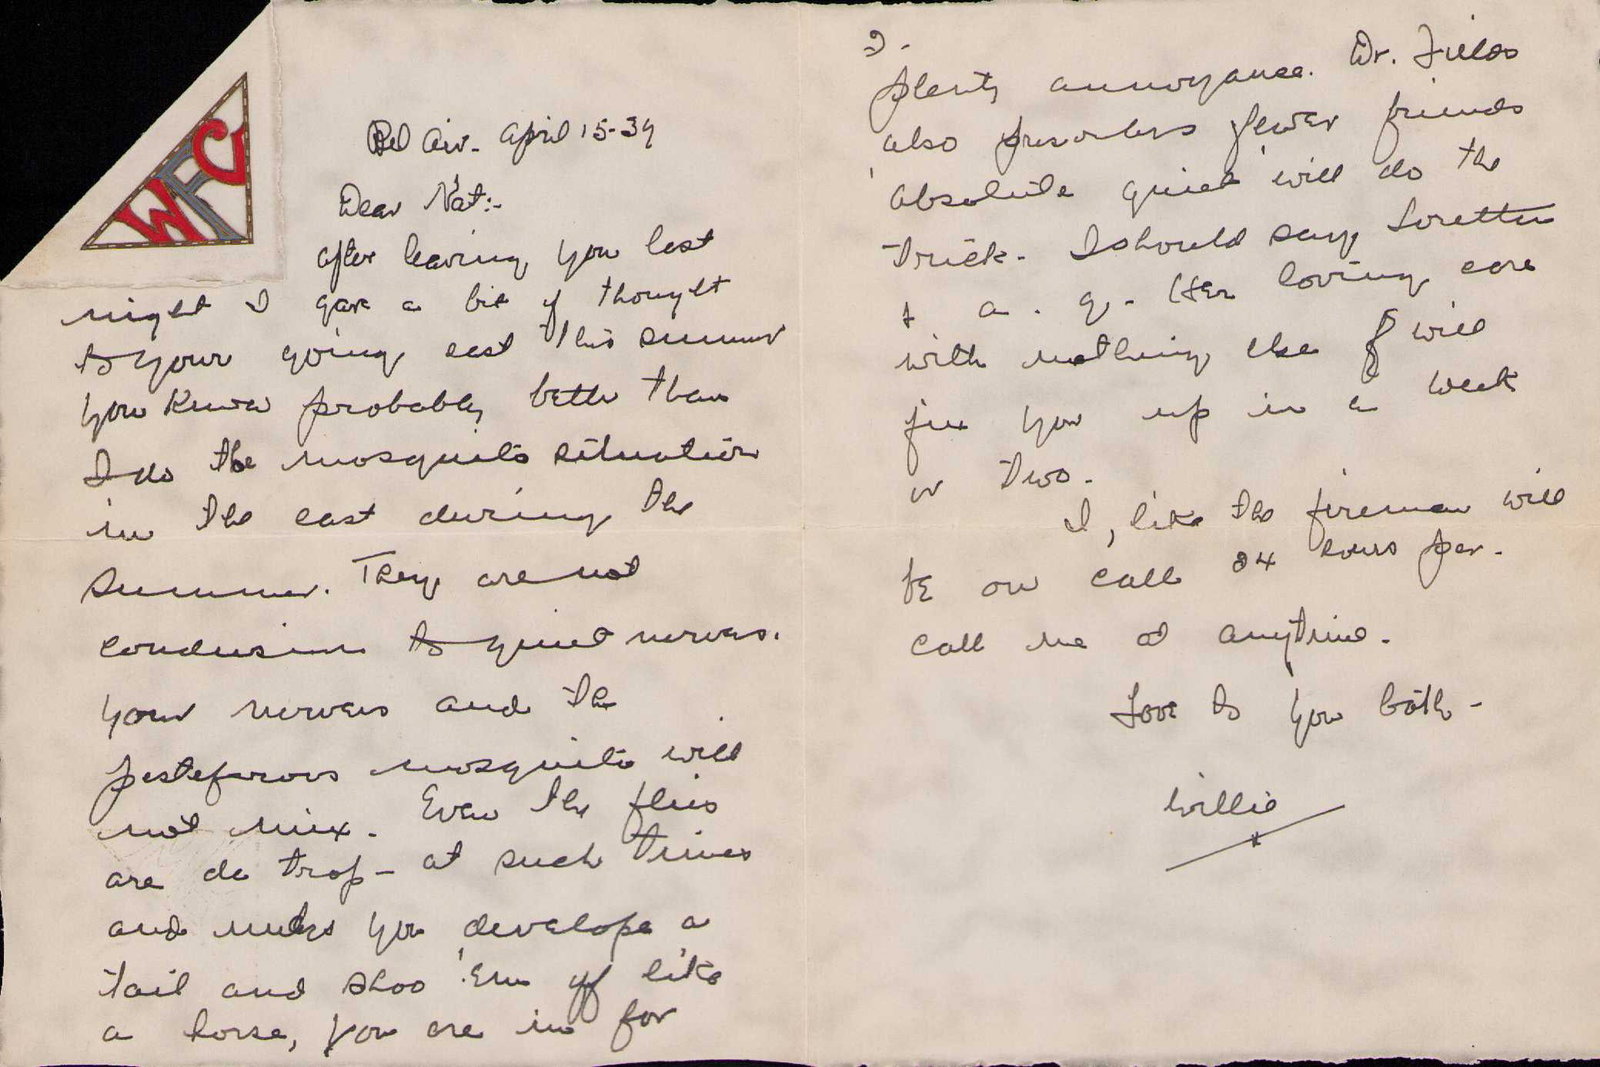 WFC
Bel Air - April 15-39
Dear Nat:-
after leaving you last
night I gave a bit of thought
to your going east this summer
you know probably better than
I do the mosquito situation
in the east during the
summer. They are not
conducive to quiet nerves.
your nerves and the
pesteferous mosquito will
not mix. Even the flies
are de trop - at such times
and unless you develope a
tail and shoo 'em off like
a horse, you are in for
2.
plenty annoyance. Dr. Fields
also prescribes fewer friends
absolute quiet will do the
trick. I should say Loretta
+ a. q. - Her loving care
with nothing else will
fix you up in a week
or two.
I, like the fireman will
be on call 24 hours per.
call me at anytime.
Love to you both -
Willie